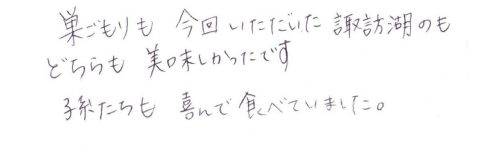 巣ごもりも 今回いただいた 諏訪湖のも
どちらも 美味しかったです
孫たちも 喜んで食べていました。